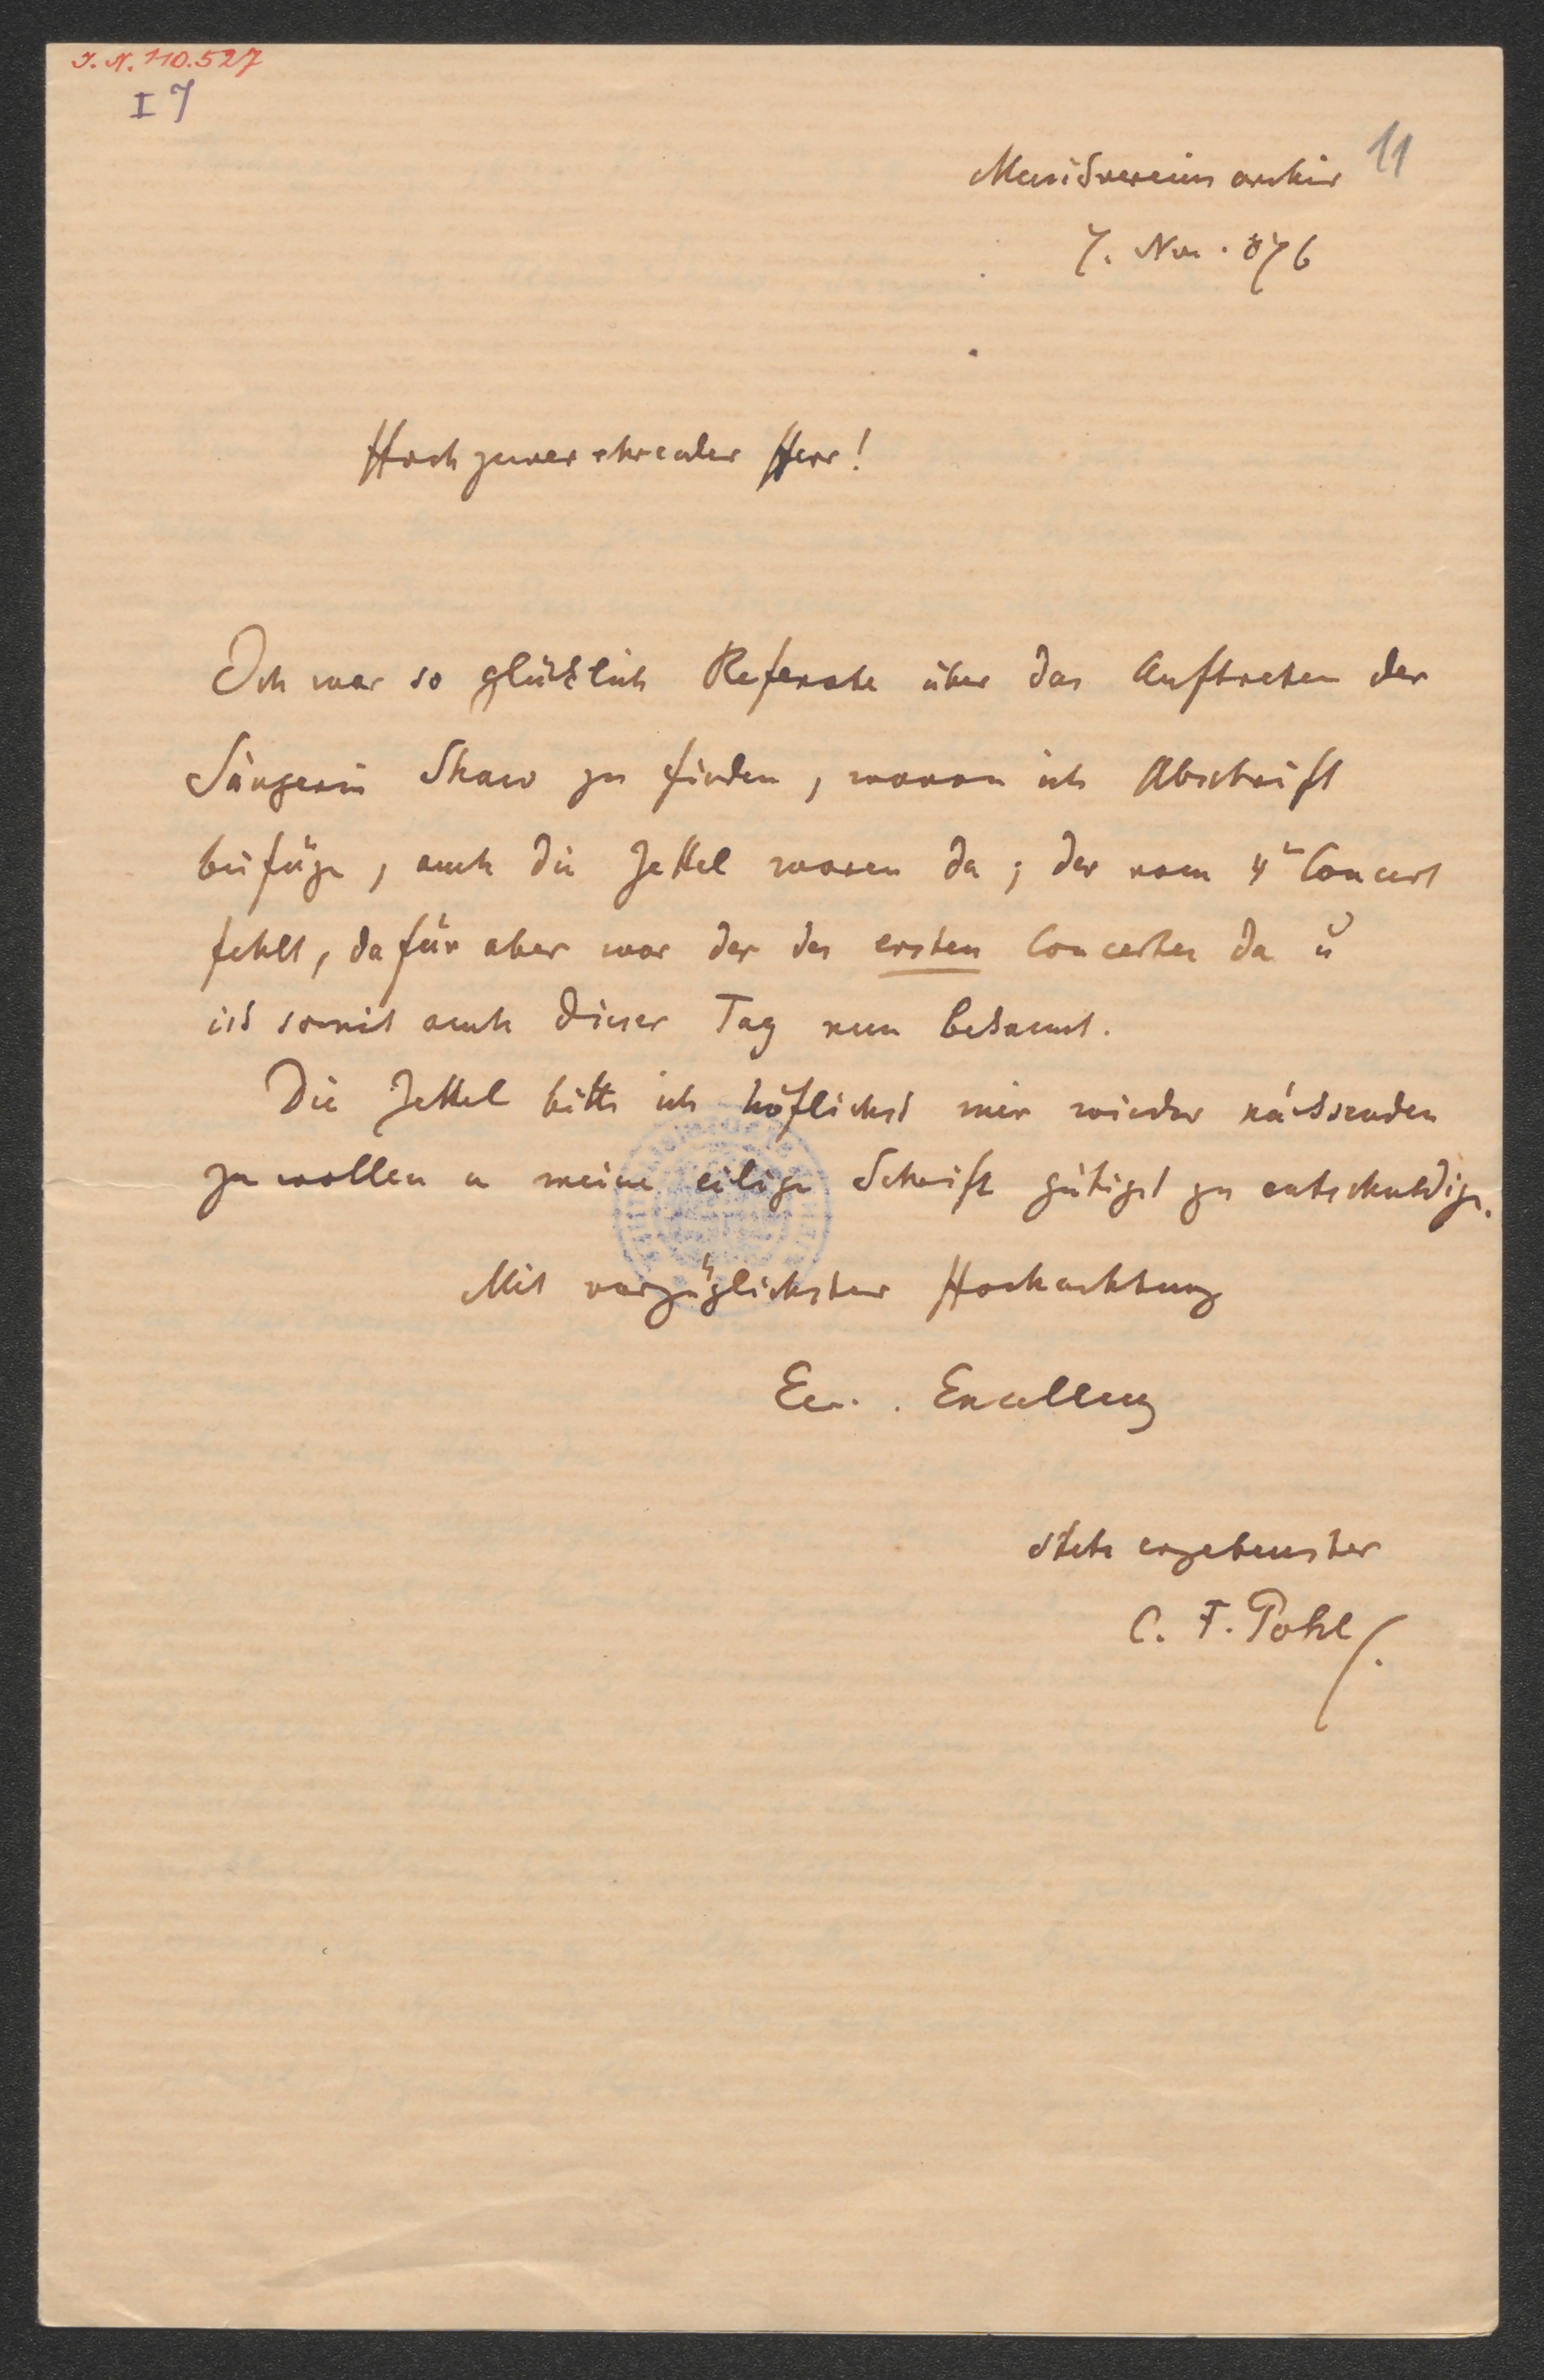 J. N. 110.527
I 7
11
Musikvereins archiv
7. Nov. 876
Hochzuverehrender Herr!
Ich war so glücklich Referate über das Auftreten der
Sängerin Shaw zu finden, wovon ich Abschrift
beifüge, auch die Zettel waren da; der vom 4t Concert
fehlt, dafür aber war der des ersten Concertes da u
ist somit auch dieser Tag nun bekannt.
Die Zettel bitte ich höflichst mir wieder rücksenden
zu wollen u meine eilige Schrift gütigst zu entschuldige.
Mit vorzüglichster Hochachtung
Eu. Excellenz
stets ergebenster
C. F. Pohl